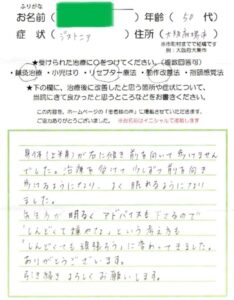 ふりがな
お名前( )年齢( 50 代)
症 状( ジストニア )住所( 大阪府堺市 )
※市町村までで結構です
例:大阪府大東市
★受けられた治療に○をつけてください。(複数回答可)
・鍼灸治療 ・小児はり ・リセプター療法 ・動作改善法 ・指頭感覚法
★下の欄に、治療後に改善したと思う箇所や症状について、
当院にきて良かったと思うところなどをお書きください。
この内容を、ホームページの「患者様の声」に掲載させていただきます。
ご協力ありがとうございました。 ※お名前はイニシャルで掲載します
身体(上半身)が右に傾き前を向いて歩けません
でした。治療を受けて少しずつ前を向き
歩けるようになり、よく眠れるようになり
ました。
先生方が明るくアドバイスも下さるので
「しんどくて嫌やな」という考えも
「しんどくても頑張ろう」に変わってきました。
ありがとうございます。
引き続きよろしくお願いします。